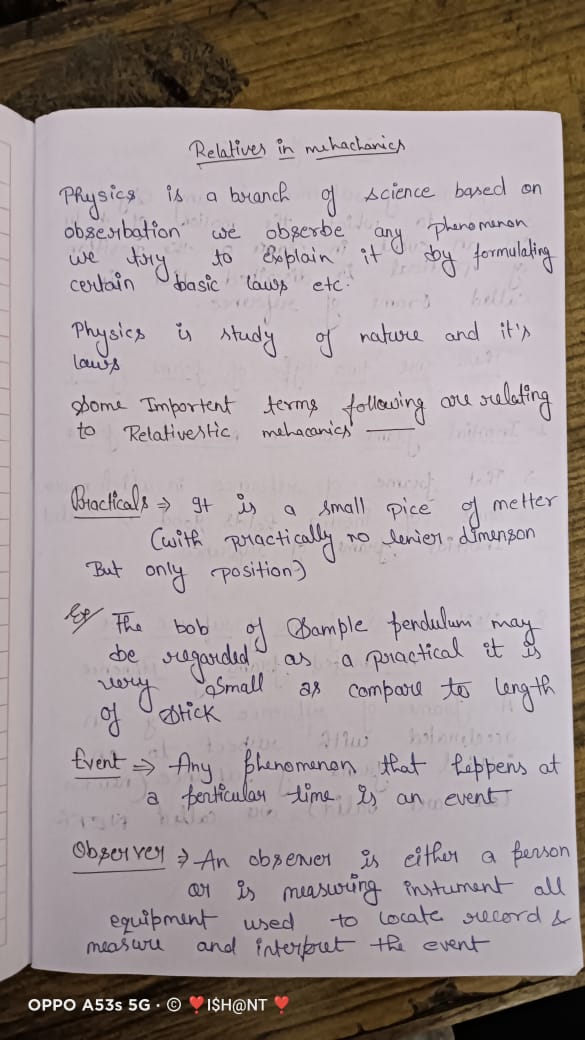 Relatives in mehachanics
Physics is a branch of science based on
obserbation we obserbe any phenomenon
we try to Explain it by formulating
certain basic laws etc.
Physics is study of nature and it's
laws
Some Importent terms following are relating
to Relativestic mehacanics
Practicals ⇒ It is a small pice of metter
(with practically no lenier dimenson
But only position)
Ex The bob of Sample pendulum may
be regarded as a practical it is
very small as compare to length
of Stick
Event ⇒ Any phenomenon that heppens at
a perticular time is an event
Observer ⇒ An observer is either a person
or is measuring instument all
equipment used to locate record &
measure and interpret the event
OPPO A53s 5G · © ❤️I$H@NT ❤️